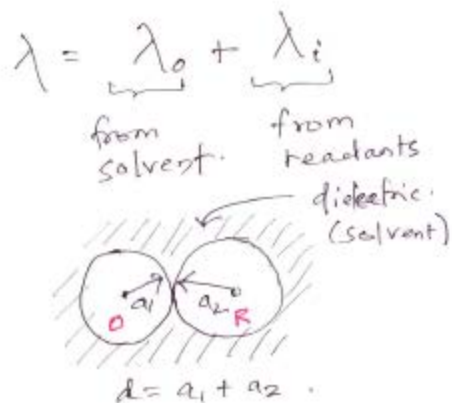 λ = λₒ + λᵢ
from solvent.
from reactants
dielectric.
(solvent)
a₁ a₂
O R
d = a₁ + a₂ .